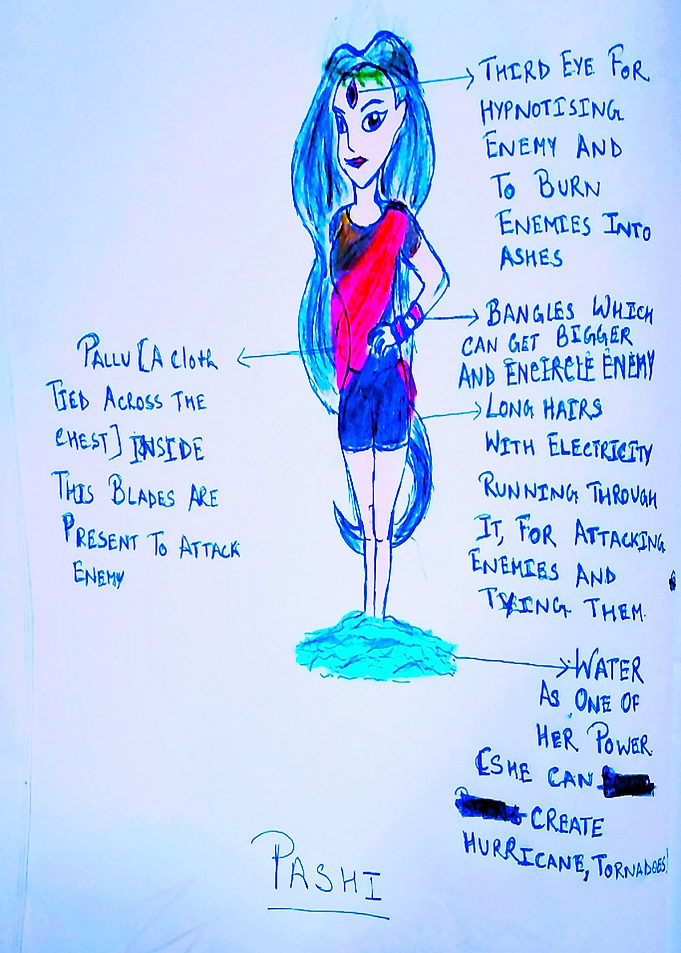 THIRD EYE FOR
HYPNOTISING
ENEMY AND
TO BURN
ENEMIES INTO
ASHES
BANGLES WHICH
CAN GET BIGGER
AND ENCIRCLE ENEMY
PALLU [A CLOTH
TIED ACROSS THE
CHEST] INSIDE
THIS BLADES ARE
PRESENT TO ATTACK
ENEMY
LONG HAIRS
WITH ELECTRICITY
RUNNING THROUGH
IT, FOR ATTACKING
ENEMIES AND
TYING THEM.
WATER
AS ONE OF
HER POWER.
[SHE CAN
CREATE
HURRICANE, TORNADOES]
PASHI